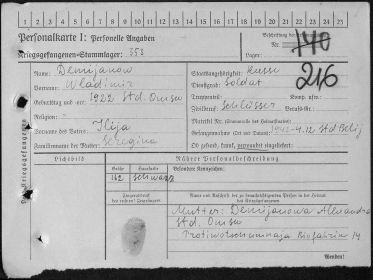 1 2 3 4 5 6 7 8 9 10 11 12 13 14 15 16 17 18 19 20 21 22 23 24 25
Personalkarte I: Personelle Angaben
Kriegsgefangenen-Stammlager: 353
Beschriftung der
Nr. 140
Lager:
216
Name: Demijanow
Vorname: Wladimir
Geburtstag und -ort: 1922 Std. Omsu
Religion: -
Vorname des Vaters: Ilija
Familienname der Mutter:
Staatsangehörigkeit: Russe
Dienstgrad: Soldat
Truppenteil: Komp. usw.:
Zivilberuf: Schlösser Berufs-Gr.:
Matrikel Nr.
Gefangennahme (Ort und Datum): 1942 4.12 Std Belij
Ob gesund, krank, verwundet eingeliefert:
Lichtbild
Nähere Personalbeschreibung
Größe
Haarfarbe
Besondere Kennzeichen:
162
schwarz
Fingerabdruck
des rechten Zeigefingers
Name und Anschrift der zu benachrichtigenden Person in der Heimat
des Kriegsgefangenen
Mutter: Demijanowa Alexandra
Std. Omsu
14
Wenden!